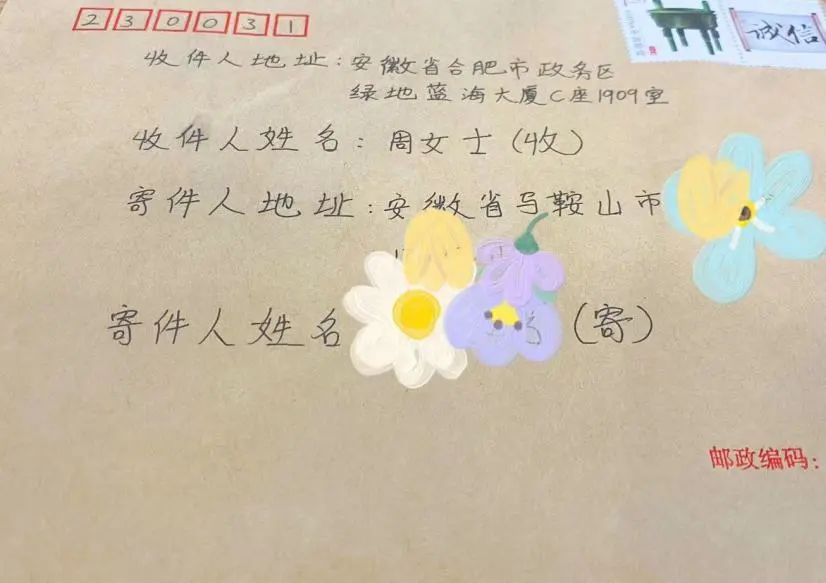 230031
诚信
收件人地址：安徽省合肥市政务区
绿地蓝海大厦C座1909室
收件人姓名：周女士（收）
寄件人地址：安徽省马鞍山市
寄件人姓名
（寄）
邮政编码：